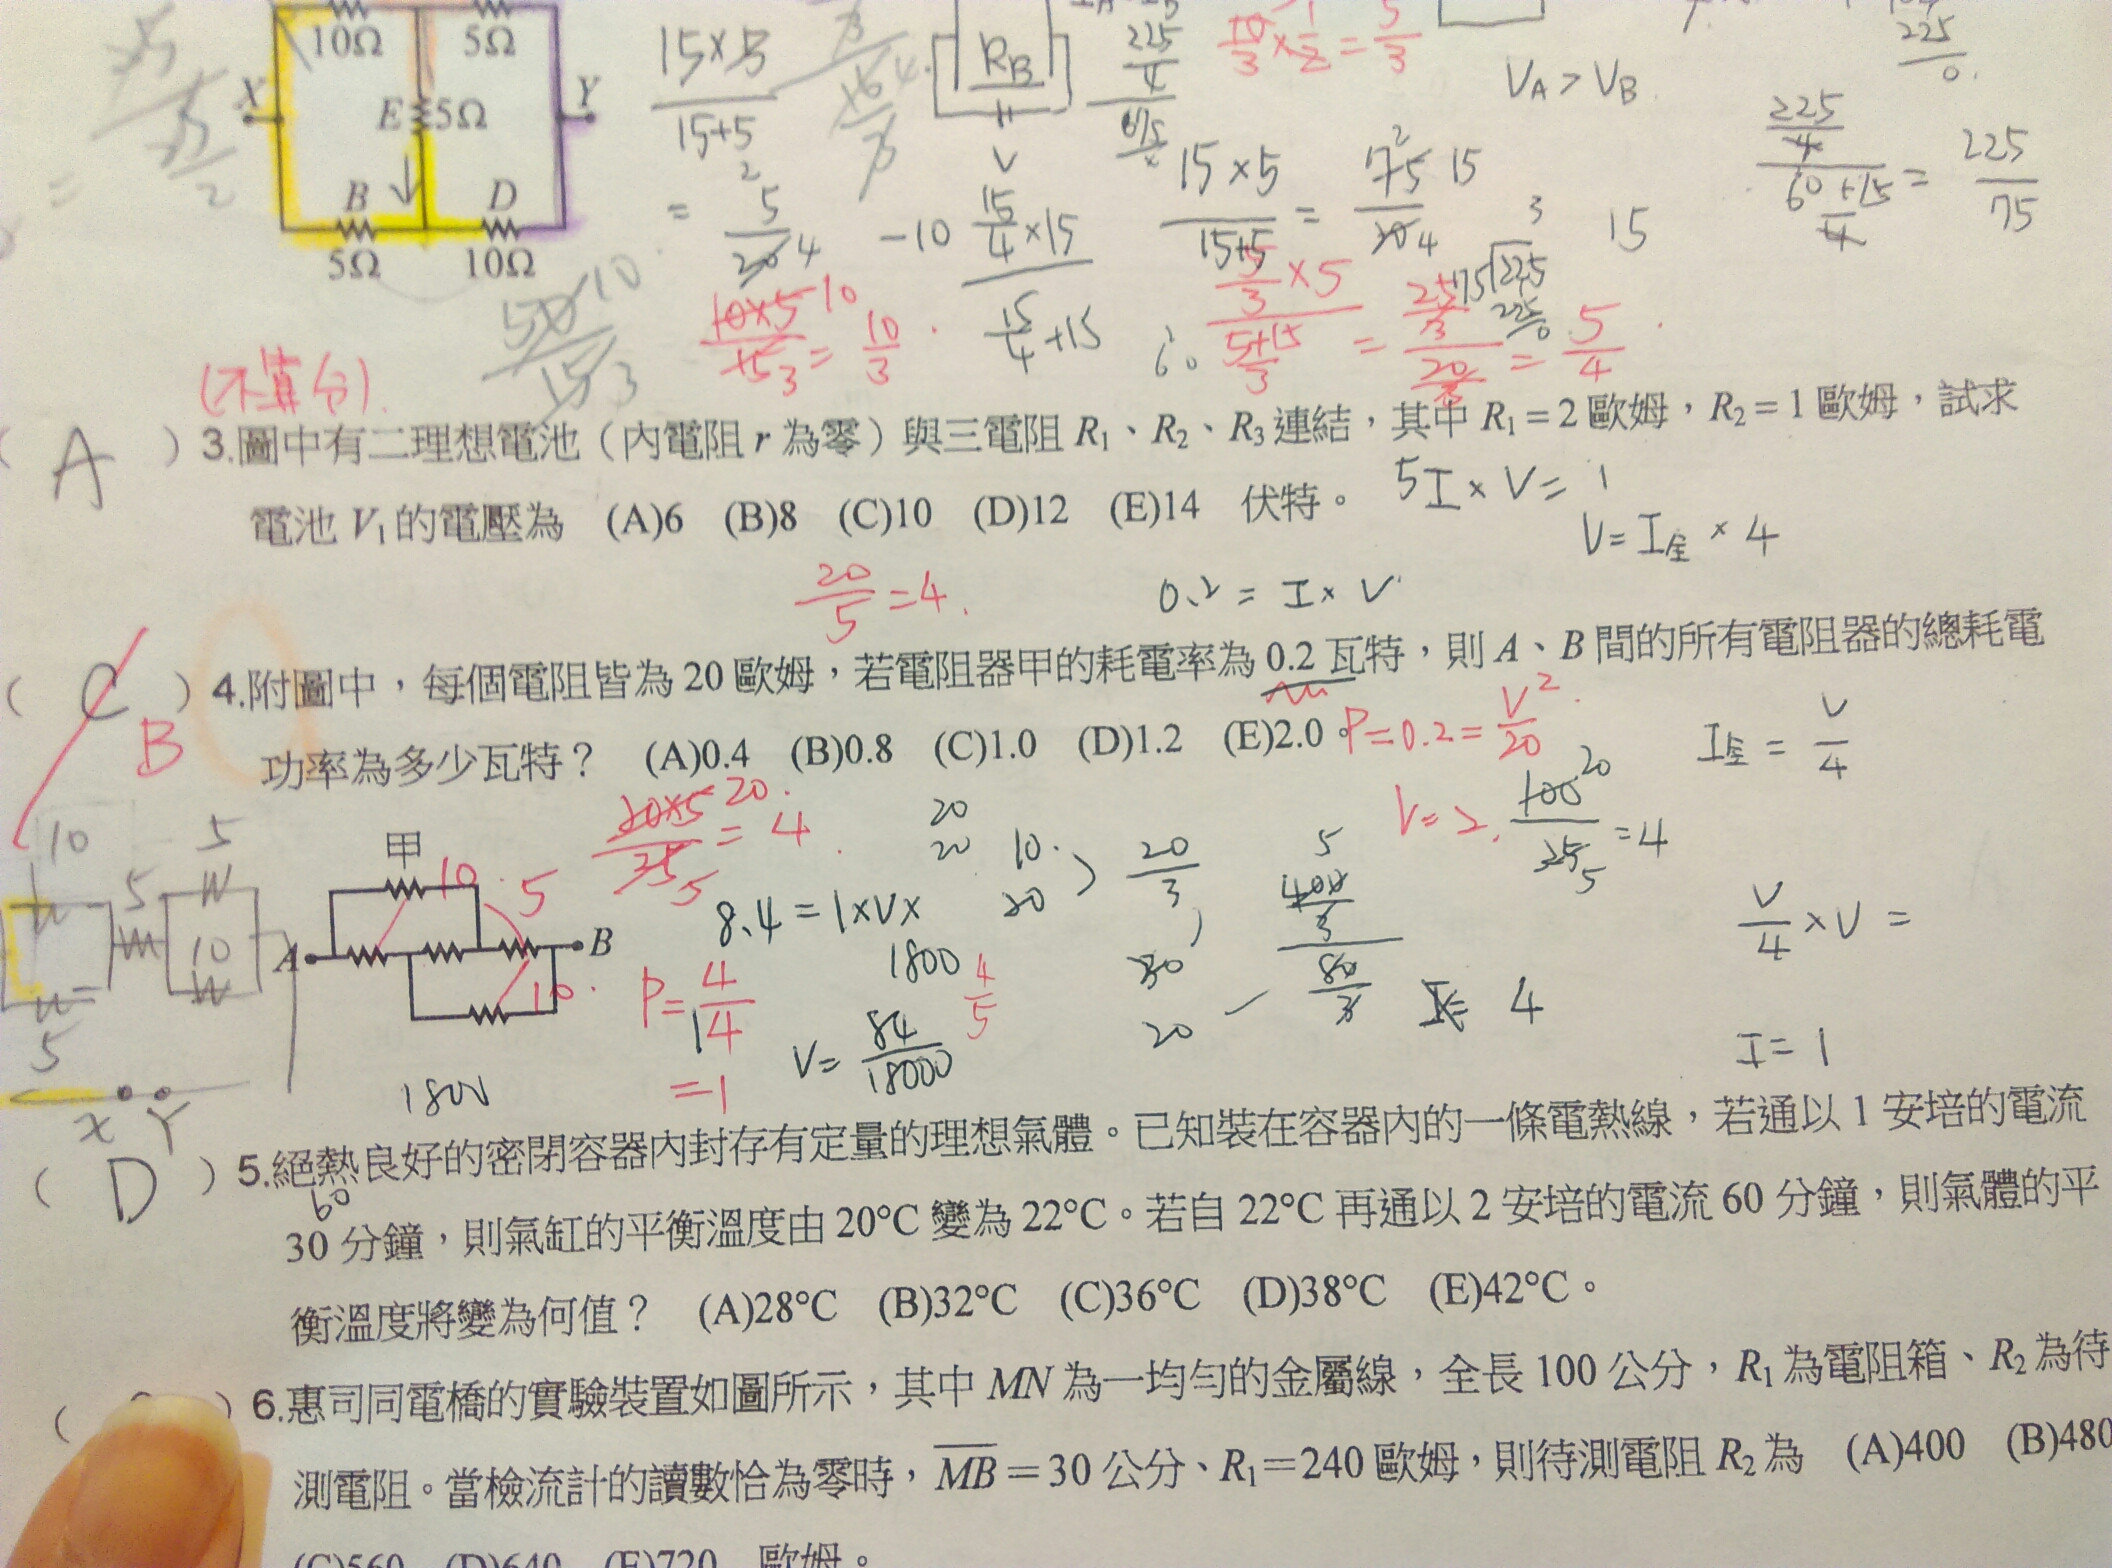 10Ω 5Ω
X E 5Ω Y
B D
5Ω 10Ω
15×5
15+5
R_B
V_A > V_B
15×5
15+5
= 75 15
20 4
15
225
4
60+15
4
= 225
75
15
4 ×15
15
4 +15
10×5 10
15 3 = 10
3
5
3 ×5
= 5
4
(不算分).
( A ) 3.圖中有二理想電池(內電阻 r 為零)與三電阻 R₁、R₂、R₃連結,其中 R₁=2 歐姆,R₂=1 歐姆,試求
電池 V₁的電壓為 (A)6 (B)8 (C)10 (D)12 (E)14 伏特。
5I × V = 1
V = I全 × 4
20
5 = 4.
0.2 = I × V
( C B ) 4.附圖中,每個電阻皆為 20 歐姆,若電阻器甲的耗電率為 0.2 瓦特,則 A、B 間的所有電阻器的總耗電
功率為多少瓦特? (A)0.4 (B)0.8 (C)1.0 (D)1.2 (E)2.0。
P=0.2= V²
20
I全 = V
4
V=2.
100 20
25 5 = 4
20×5 20
25 5 = 4
20
20
10
20
20
3
8.4 = 1×V×
1800
V= 84
18000
4
5
P= 4
4
=1
I= 4
V
4 ×V =
I = 1
10 5
5
10
5
X Y
甲
10 5
A B
10
1800
( D ) 5.絕熱良好的密閉容器內封存有定量的理想氣體。已知裝在容器內的一條電熱線,若通以 1 安培的電流
60
30 分鐘,則氣缸的平衡溫度由 20°C 變為 22°C。若自 22°C 再通以 2 安培的電流 60 分鐘,則氣體的平
衡溫度將變為何值? (A)28°C (B)32°C (C)36°C (D)38°C (E)42°C。
( ) 6.惠司同電橋的實驗裝置如圖所示,其中 MN 為一均勻的金屬線,全長 100 公分,R₁ 為電阻箱、R₂ 為待
測電阻。當檢流計的讀數恰為零時,MB=30 公分、R₁=240 歐姆,則待測電阻 R₂ 為 (A)400 (B)480
(C)560 (D)640 (E)720 歐姆。